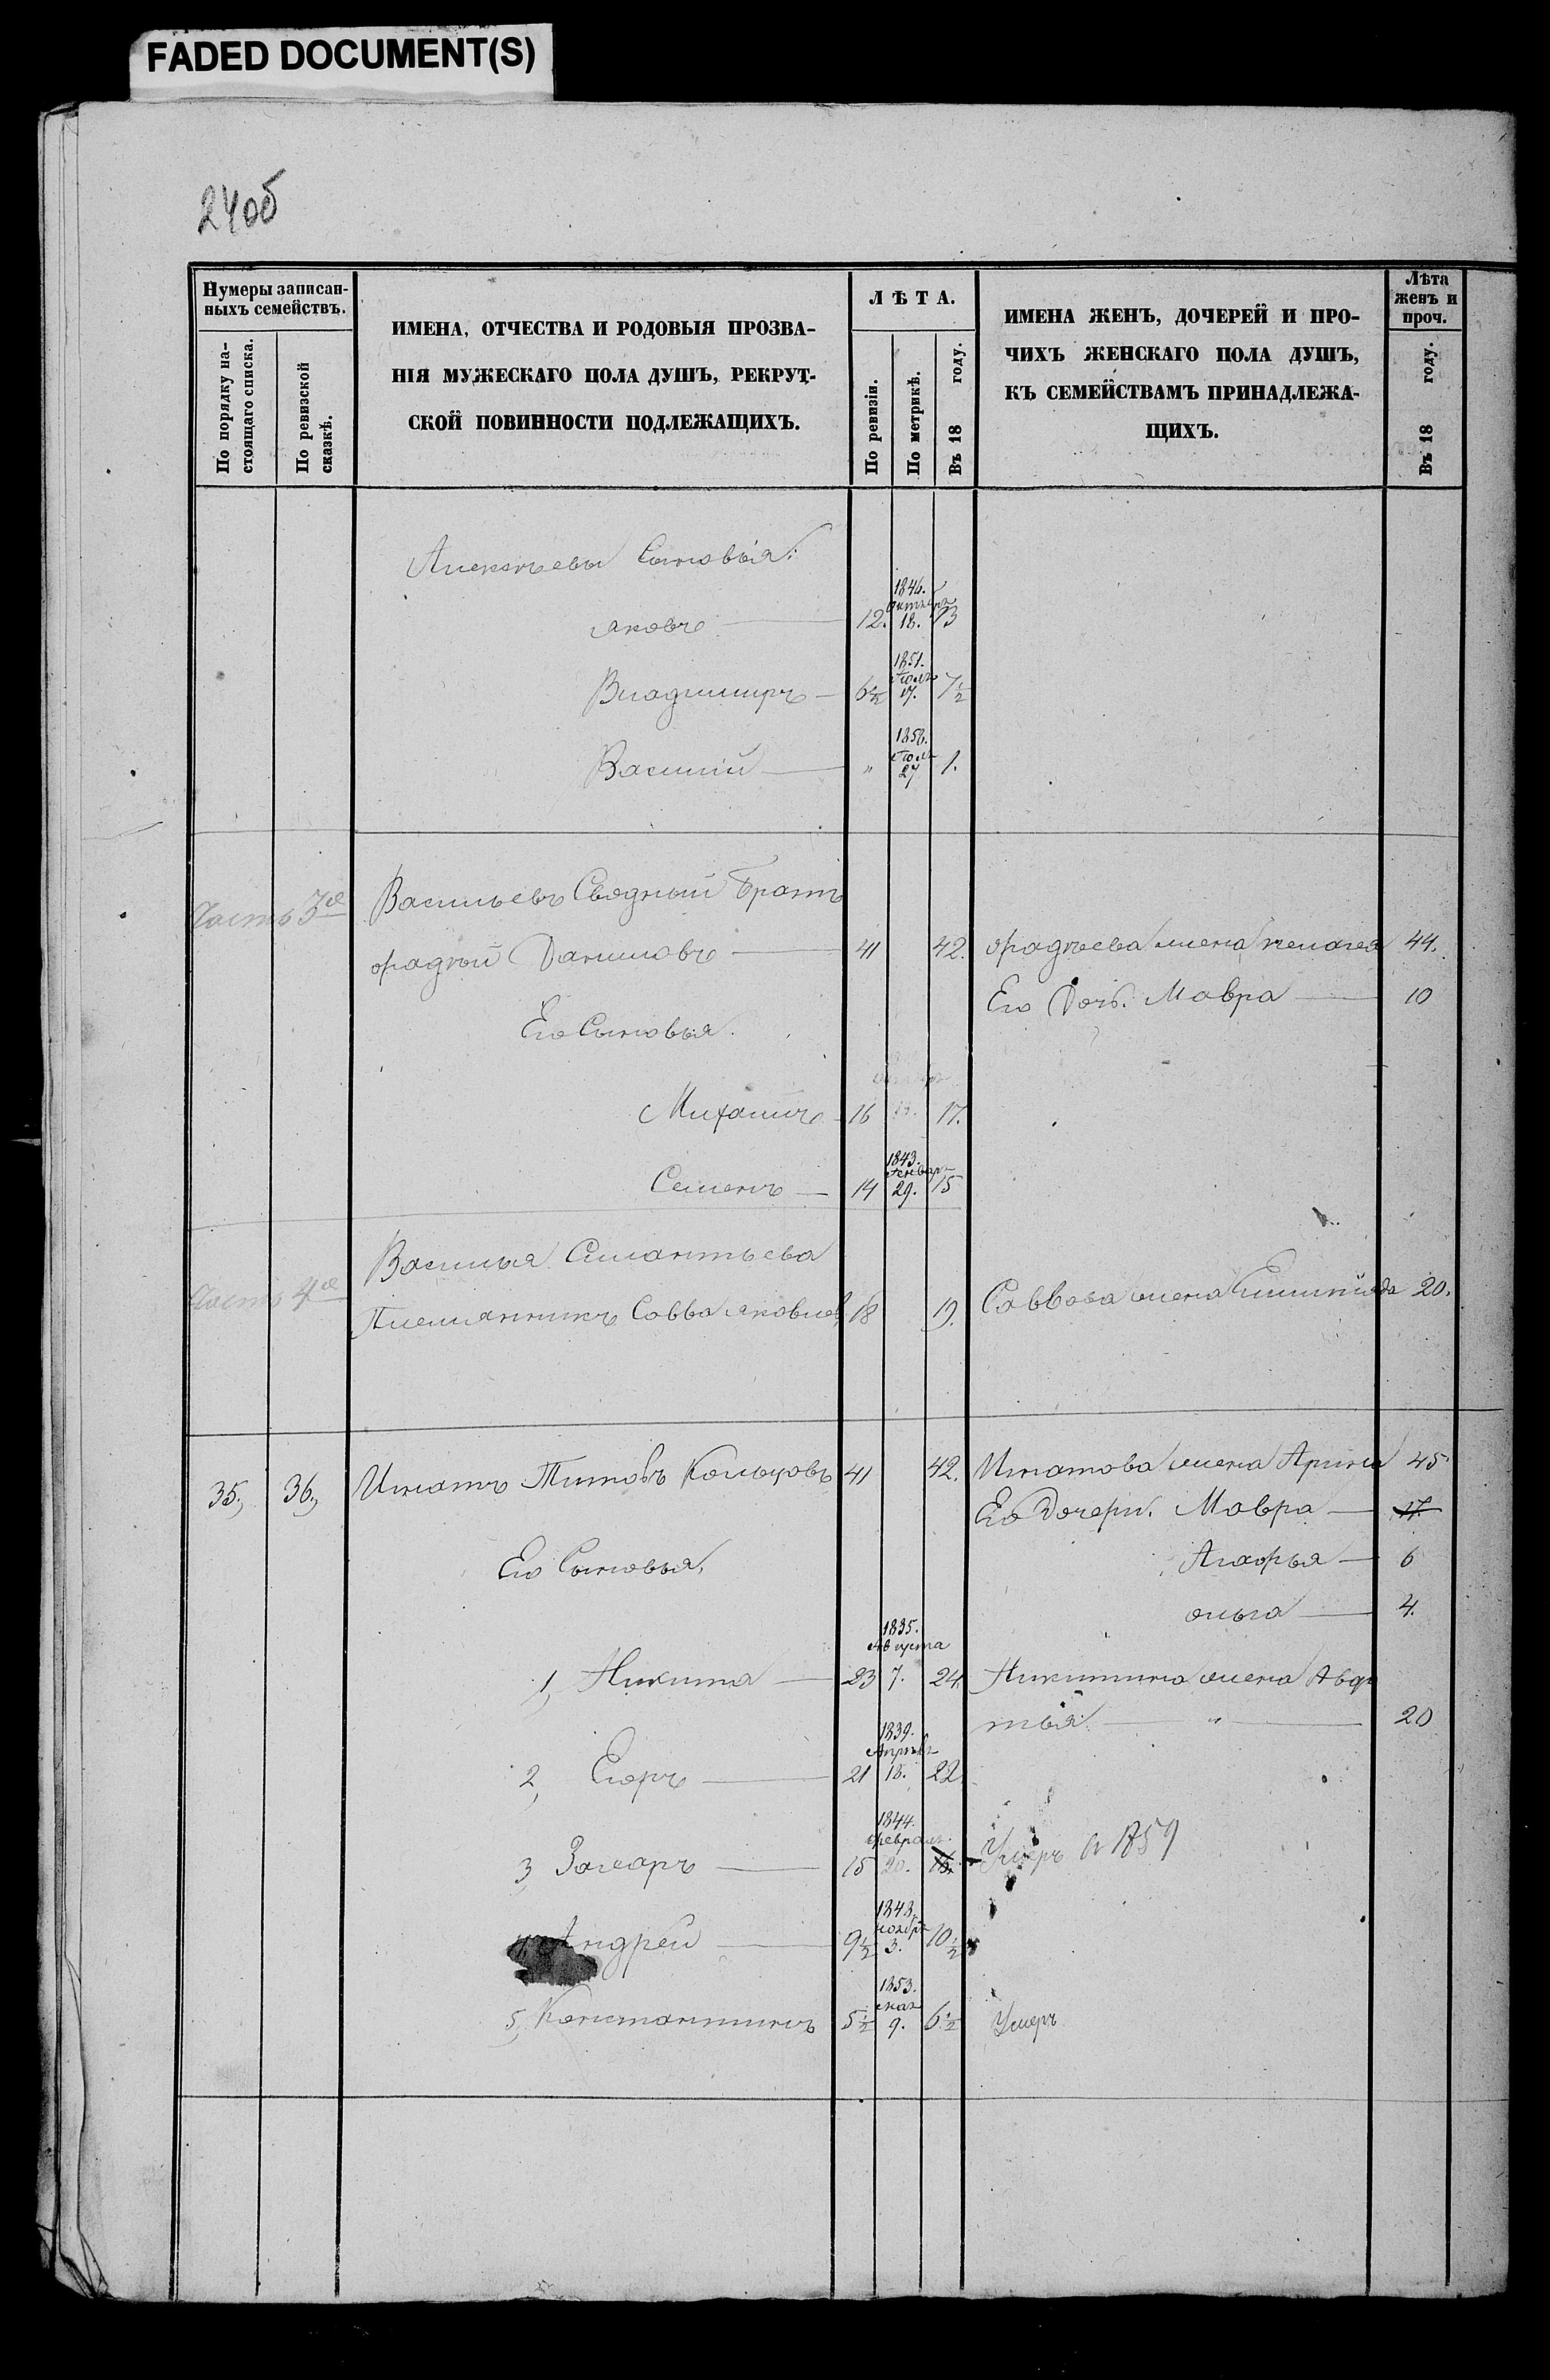 FADED DOCUMENT(S)
24об
Нумеры записан-
ныхъ семействъ.
По порядку на-
стоящаго списка.
По ревизской
сказкѣ.
ИМЕНА, ОТЧЕСТВА И РОДОВЫЯ ПРОЗВА-
НІЯ МУЖЕСКАГО ПОЛА ДУШЪ, РЕКРУТ-
СКОЙ ПОВИННОСТИ ПОДЛЕЖАЩИХЪ.
ЛѢТА.
По ревизіи.
По метрикѣ.
Въ 18 году.
ИМЕНА ЖЕНЪ, ДОЧЕРЕЙ И ПРО-
ЧИХЪ ЖЕНСКАГО ПОЛА ДУШЪ,
КЪ СЕМЕЙСТВАМЪ ПРИНАДЛЕЖА-
ЩИХЪ.
Лѣта
женъ и
проч.
Въ 18 году.
Алексѣевы Сыновья:
1846.
Октября
Яковъ 12. 18. 13
1851.
Іюля
Владимиръ 6½ 17. 7½
1858.
Іюля
Василій " 27 1.
Часть 3я Васильевъ Сводный Братъ
Фадѣй Даниловъ 41 42. Фадѣева жена Пелагея 44.
Его Дочь. Мавра 10
Его Сыновья.
Михаилъ 16 17.
1843.
Генваря
Семенъ 14 29. 15
Часть 4я Василья Силантьева
Племянникъ Савва Яковлев 18 19. Саввова жена 20.
35, 36, Игнатъ Титовъ Кольцовъ 41 42. Игнатова жена Арина 45
Его Дочери. Мавра 17.
Его Сыновья, Агафья 6
Ольга 4.
1835.
Августа
1, Никита 23 7. 24. Никитина жена Авдо
тья " 20
1839.
Апрѣля
2, Егоръ 21 18. 22
1844.
Февраля
3, Захаръ 15 20. 16. Умеръ в 1859
1848.
Ноября
Андрей 9½ 3. 10½
1853.
Мая
5, Константинъ 5½ 9. 6½ Умеръ